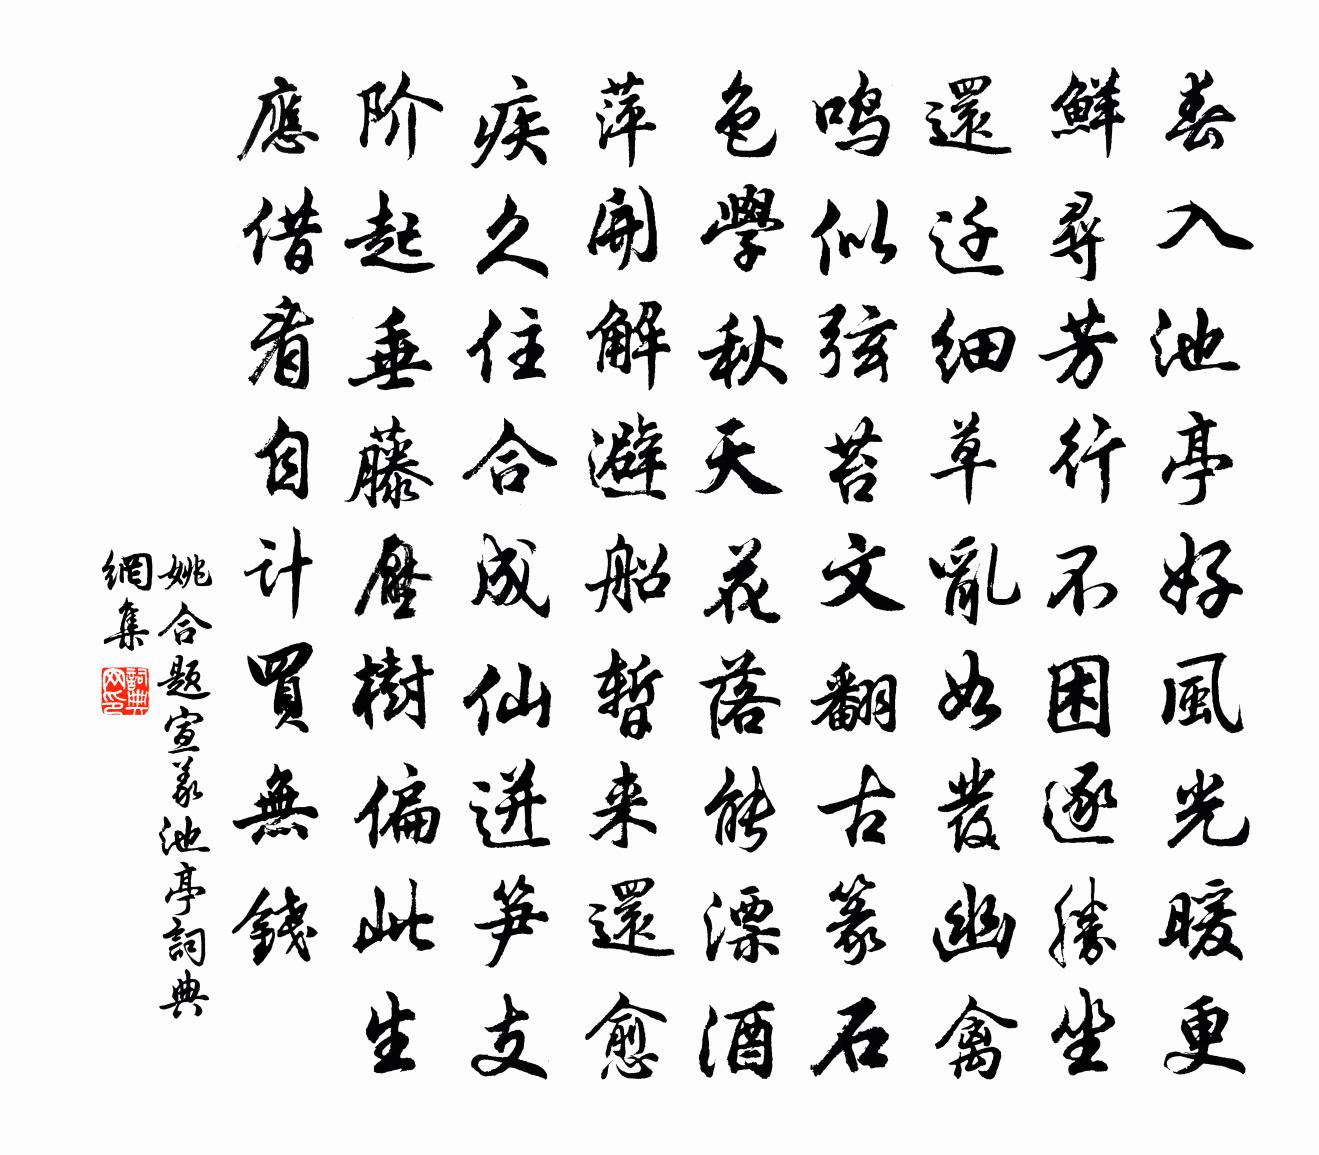 春入池亭好風光暖更
鮮尋芳行不困逐勝坐
還迁細草亂如髮幽禽
鸣似弦苔文翻古篆石
色學秋天花落能漂酒
萍開解避船暫来還愈
疾久住合成仙迸笋支
阶起垂藤壓樹偏此生
應借看自计買無錢
姚合题宣義池亭詞典
網集
詞典网印